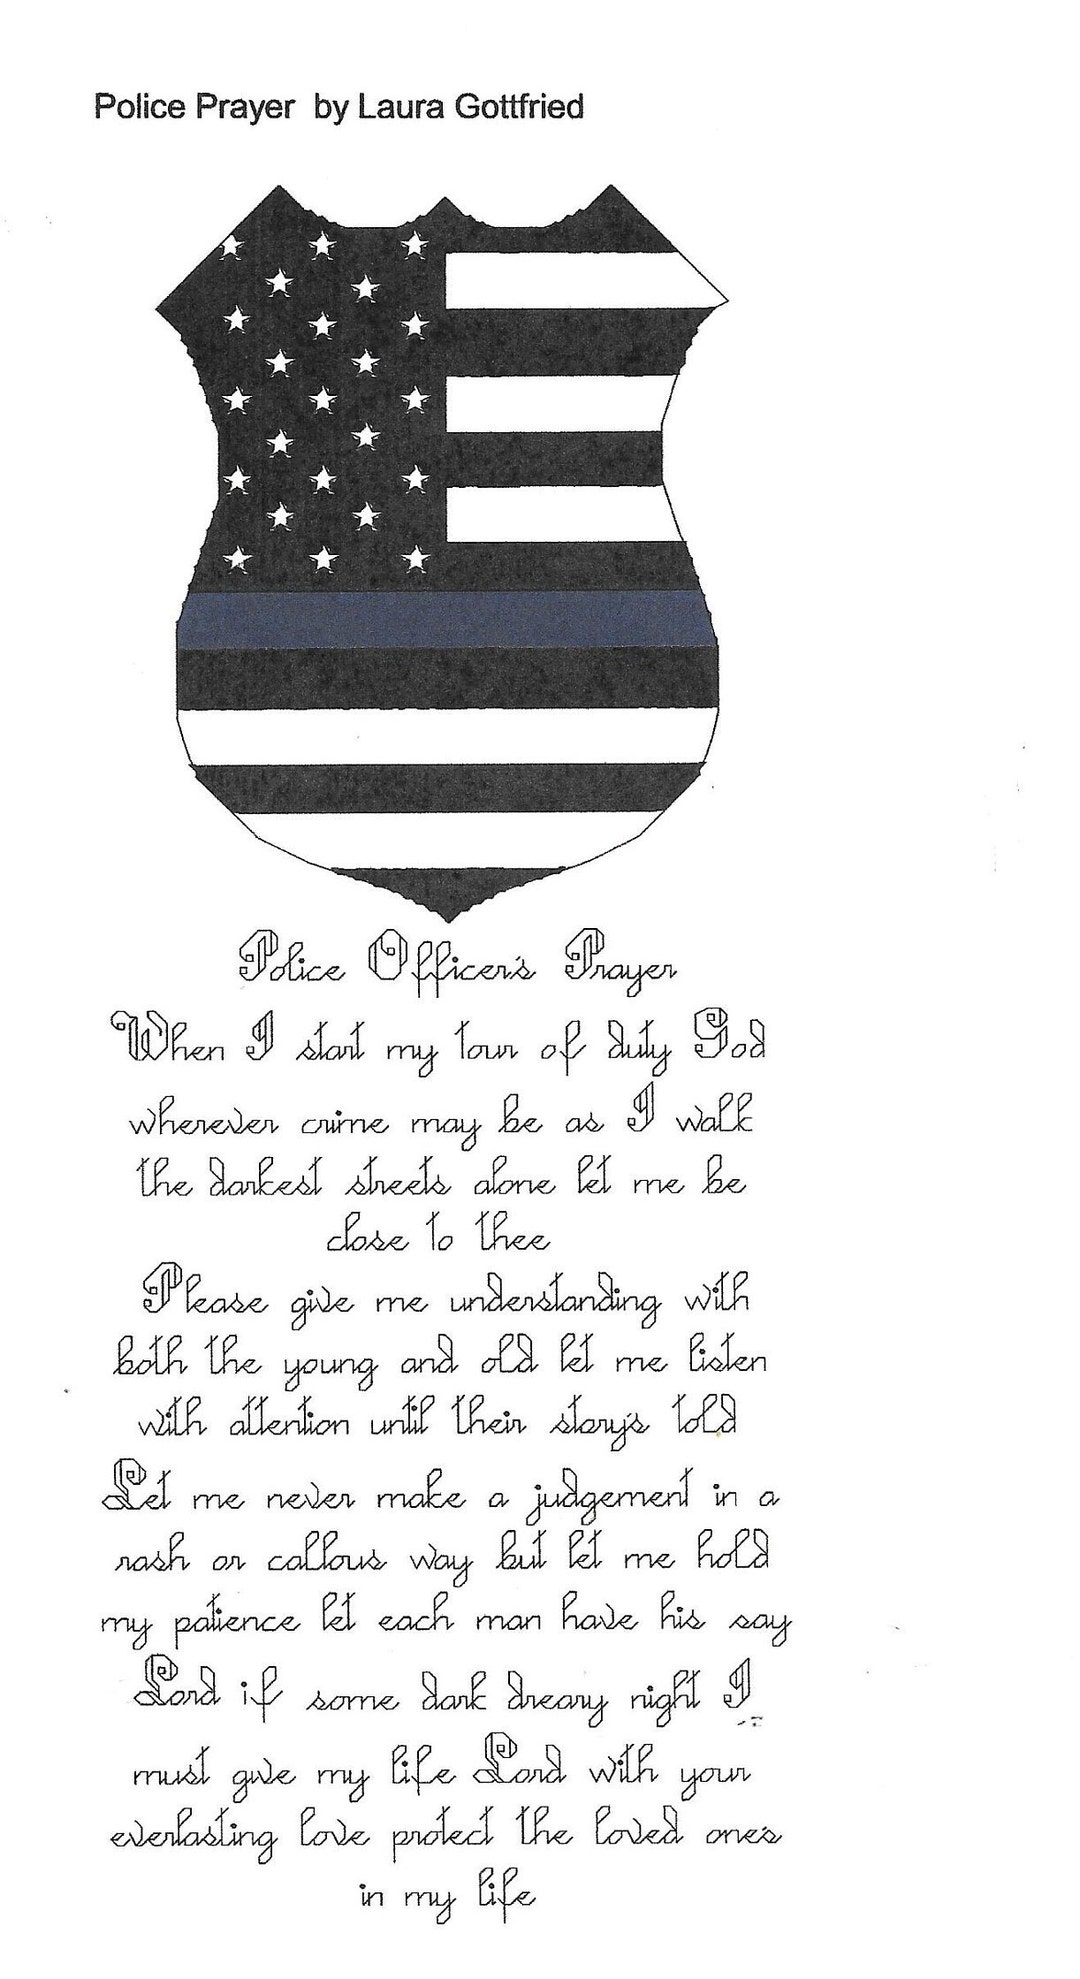 Police Prayer by Laura Gottfried
Police Officer's Prayer
When I start my tour of duty God
wherever crime may be as I walk
the darkest streets alone let me be
close to thee
Please give me understanding with
both the young and old let me listen
with attention until their story's told
Let me never make a judgement in a
rash or callous way but let me hold
my patience let each man have his say
Lord if some dark dreary night I
must give my life Lord with your
everlasting love protect the loved one's
in my life